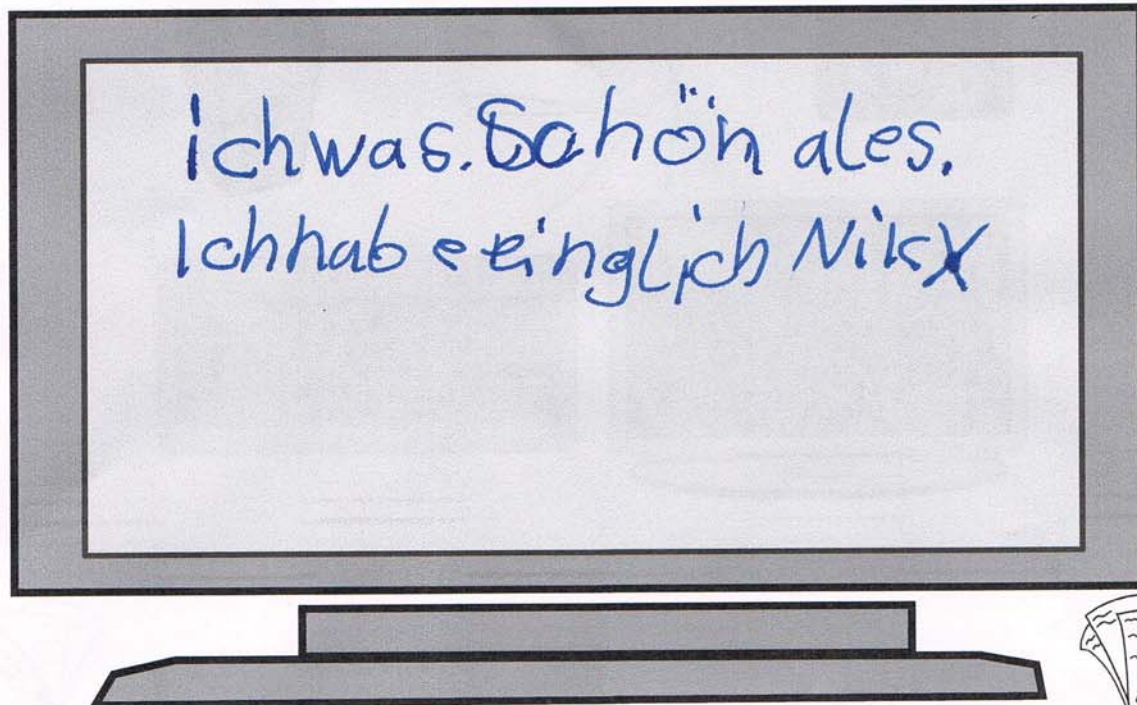 ichwas. Schön ales.
Ichhab e einglich Nikx